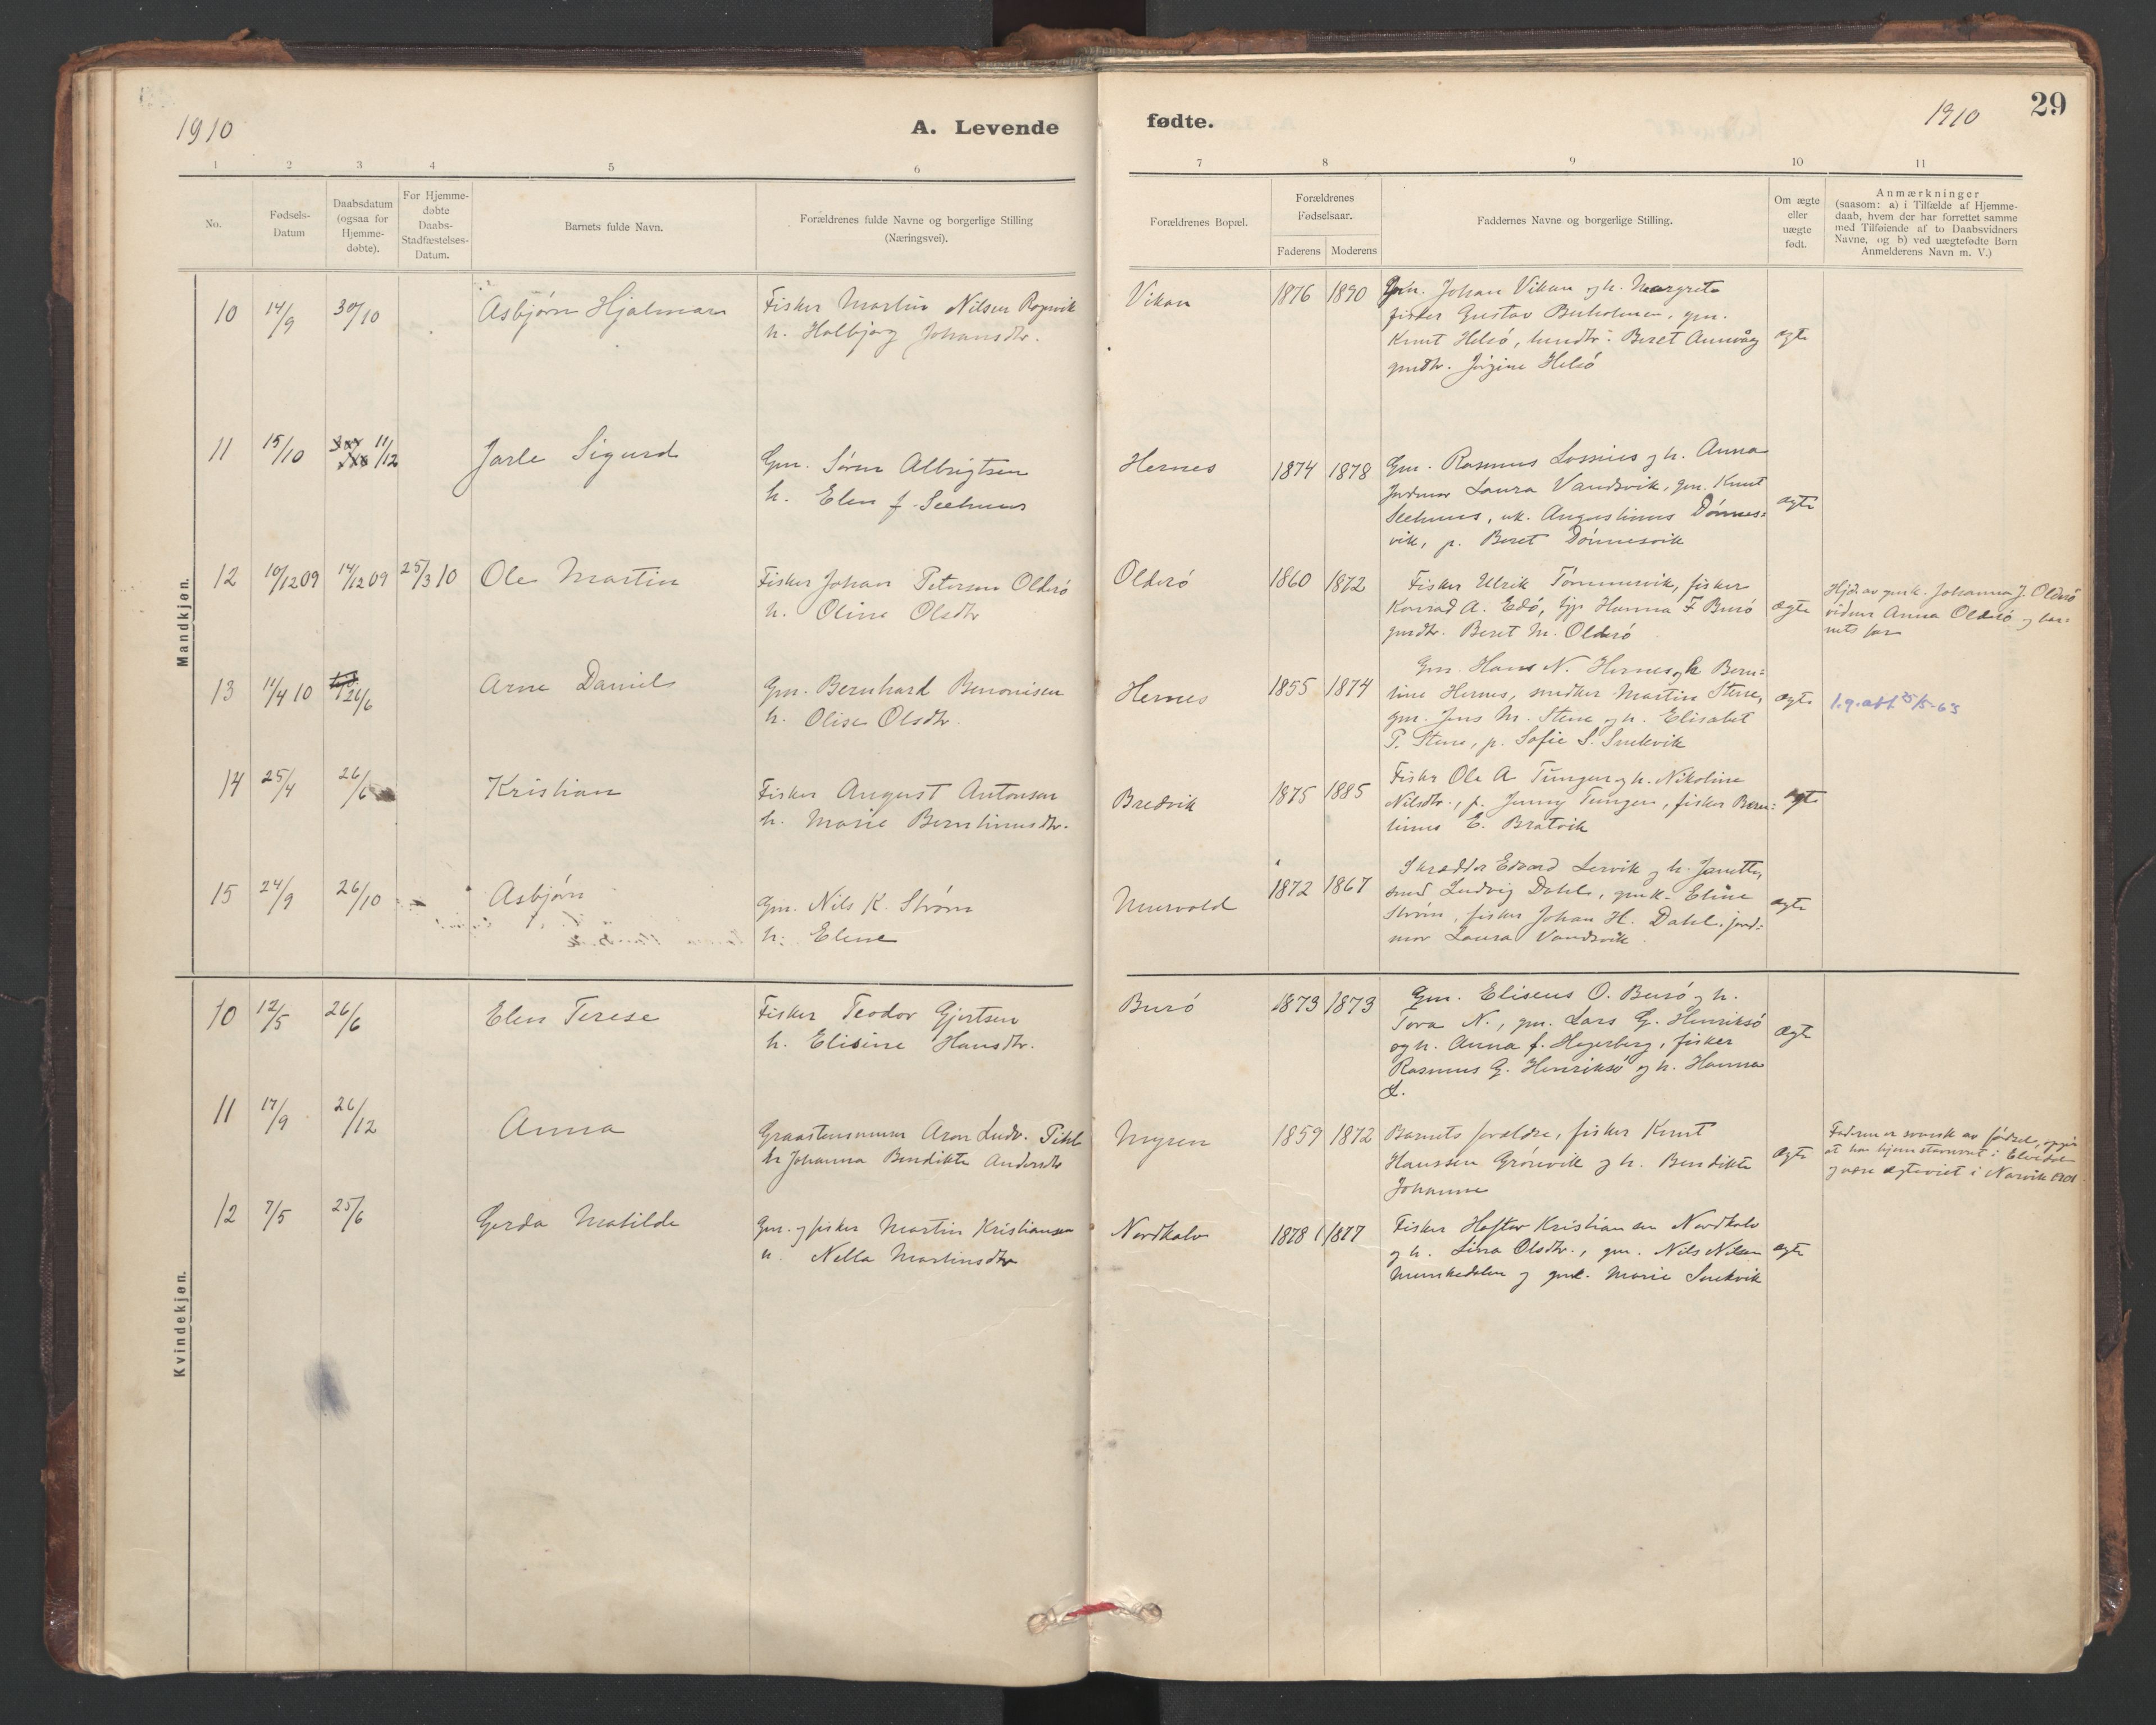 1910
A. Levende fødte.
1910
29
1 2 3 4 5 6 7 8 9 10 11
No.
Fødsels-
Datum
Daabsdatum
(ogsaa for
Hjemme-
døbte).
For Hjemme-
døbte
Daabs-
Stadfæstelses-
Datum.
Barnets fulde Navn.
Forældrenes fulde Navne og borgerlige Stilling
(Næringsvei).
Forældrenes Bopæl.
Forældrenes
Fødselsaar.
Faderens Moderens
Faddernes Navne og borgerlige Stilling.
Om ægte
eller
uægte
født.
Anmærkninger
(saasom: a) i Tilfælde af Hjemme-
daab, hvem der har forrettet samme
med Tilføiende af to Daabsvidners
Navne, og b) ved uægtefødte Børn
Anmelderens Navn m. V.)
Mandkjøn.
10 14/9 30/10 Asbjørn Hjalmar
Fisker Martin Nilsen
h. Halbjørg Johansdtr.
Vikan 1876 1890
Gm. Johan Vikan og h. Margrete
fisker Gustav Burholmen, gm.
Knut Helsó, Beret Aunvåg
gmdtr. Jørgine Helsó
ægte
11 15/10 11/12 Jarle Sigurd
Gm. Søren Albrigtsen
h. Elen f. Seehuus
Hernes 1874 1878
Gm. Rasmus Lossius og h. Anna
Jordmor Laura Vandsvik, gm. Knut
Seehuus, uk. Augustinus Dónnes=
vik, p. Beret Dónnesvik
ægte
12 10/12 09 14/12 09 25/3 10 Ole Martin
Fisker Johan Petersen Olderó
h. Oline Olsdtr
Olderó 1860 1872
Fisker Ulrik Tómmervik, fisker
Konrad A. Edó, tjp Hanna F Buró
gmdtr. Beret M. Olderó
ægte
Hjd. av gmk. Johanna J. Olderó
vidner Anna Olderó og bar=
nets far
13 11/4 10 26/6 Arne Daniel
Gm. Bernhard Benonisen
h. Olise Olsdtr.
Hernes 1855 1874
Gm. Hans N. Hernes og h Bern=
tine Hernes, snedker Martin Stene,
gm. Jens M. Stene og h. Elisabet
P. Stene, p. Sofie S. Snekvik
ægte
l.g.att 25/5-63
14 25/4 26/6 Kristian
Fisker August Antonsen
h. Marie Berntinusdtr.
Bredvik 1875 1885
Fisker Ole A Tungen og h. Nikoline
Nilsdtr., p. Jenny Tungen, fisker Bern=
tinus E. Bratvik
ægte
15 24/9 26/10 Asbjørn
Gm. Nils K. Strøm
h. Eline
Murvold 1872 1867
Skrædder Edvard Lervik og h. Janette,
smed Ludvig Dahl, gmk. Eline
Strøm, fisker Johan H. Dahl, jord=
mor Laura Vandsvik
ægte
Kvindekjøn.
10 12/5 26/6 Elen Terese
Fisker Teodor Gjertsen
h. Elisine Hansdtr.
Buró 1873 1873
Gm. Eliseus O. Buró og h.
Tora N., gm. Lars G. Henriksó
og h. Anna f. Hegerberg, fisker
Rasmus G. Henriksó og h. Hanna
L.
ægte
11 17/9 26/12 Anna
Graastensmurer Aron Ludv. Pihl
h Johanna Bendikte Andersdtr
Myren 1859 1872
Barnets forældre, fisker Knut
Hanssen Grónvik og h. Bendikte
Johanne
ægte
Faderen er svensk av fødsel, opgir
at ha hjemstavnsret i
og være ægteviet i Narvik 1901
12 7/5 25/6 Gerda Matilde
Gm. og fisker Martin Kristiansen
h. Nella Martinsdtr
Nordkalv 1878 1877
Fisker Haftor Kristiansen Nordkalv
og h. Lina Olsdtr., gm. Nils Nilsen
Munkedalen og gmk. Marie Snekvik
ægte